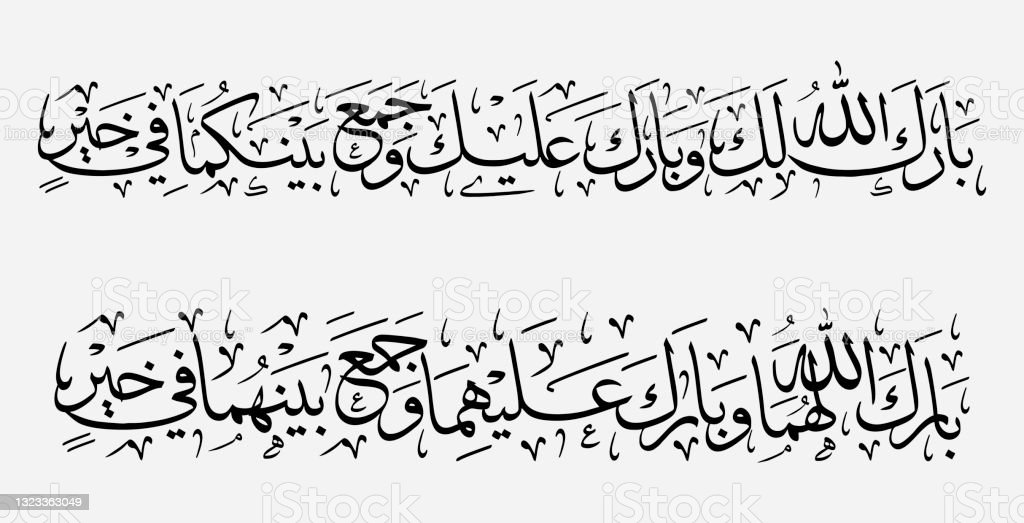 بَارَكَ اللهُ لَكَ وَبَارَكَ عَلَيْكَ وَجَمَعَ بَيْنَكُمَا فِي خَيْرٍ
بَارَكَ اللهُ لَهُمَا وَبَارَكَ عَلَيْهِمَا وَجَمَعَ بَيْنَهُمَا فِي خَيْرٍ
iStock
by Getty Images™
1323363049